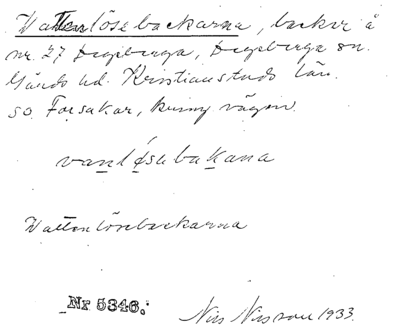 Wattenlösebackarna, backar å
nr. 27 Degeberga, Degeberga sn.
Gärds hd. Kristianstads län.
so. Forsakar, kring vägen.
vanlǿsubakana
Wattenlösebackarna
Nr 5346.
Nils Nilsson 1933.